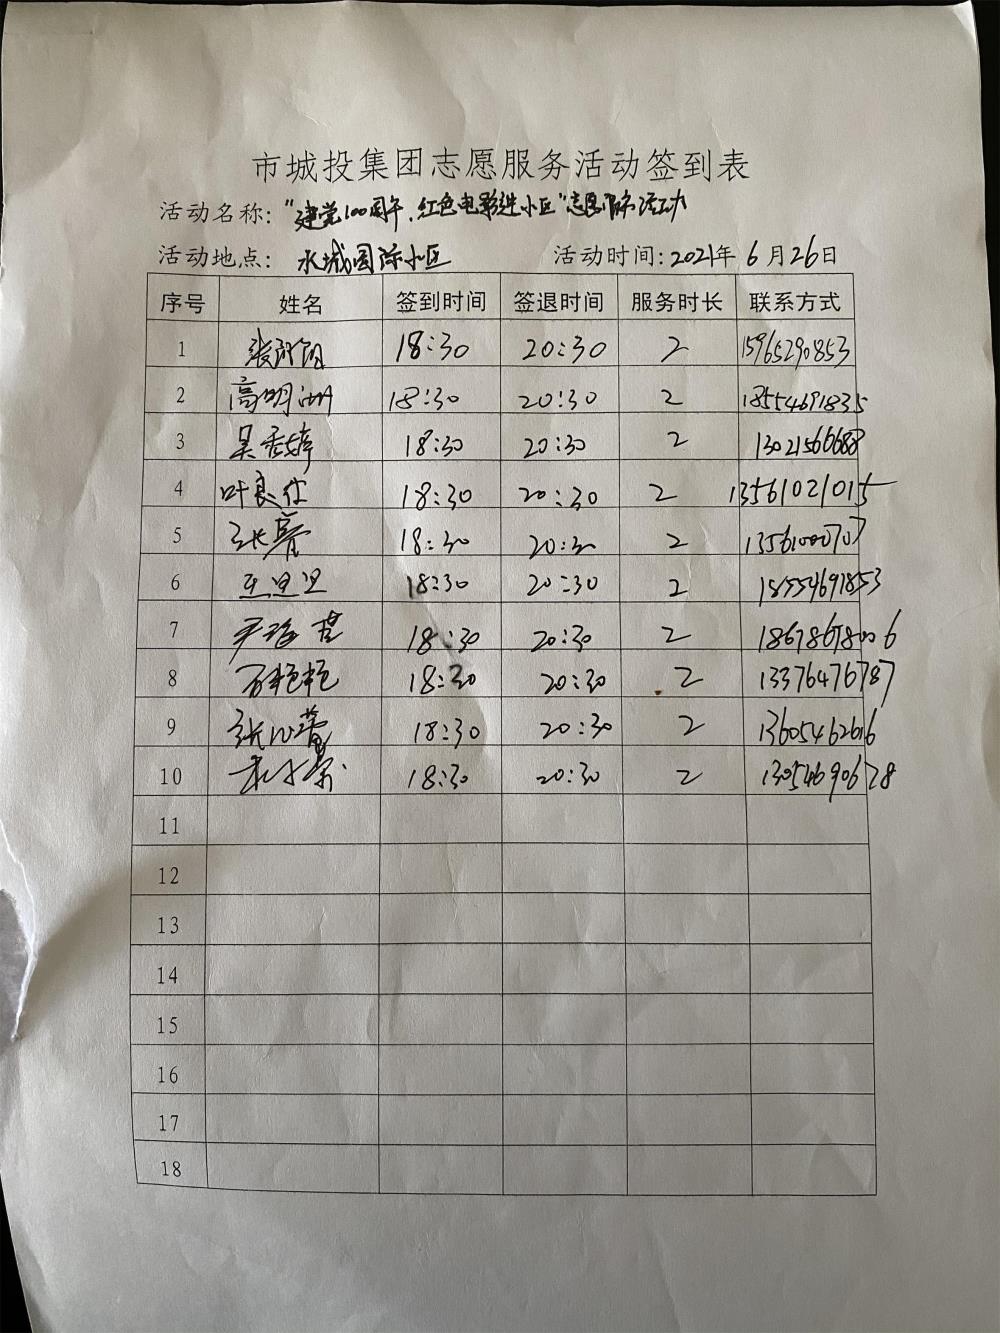 市城投集团志愿服务活动签到表
活动名称：“建党100周年，红色电影进小区”志愿服务活动
活动地点： 水城国际小区 活动时间：2021年 6 月 26 日
序号 姓名 签到时间 签退时间 服务时长 联系方式
1 18:30 20:30 2 15965290853
2 高明洲 18:30 20:30 2 18554691835
3 吴秀婷 18:30 20:30 2 13021566688
4 叶良仕 18:30 20:30 2 13561021015
5 张 18:30 20:30 2 13561000707
6 18:30 20:30 2 18554691853
7 18:30 20:30 2 18678678006
8 石艳艳 18:30 20:30 2 13376476787
9 张心蕾 18:30 20:30 2 13605462616
10 18:30 20:30 2 13054690678
11
12
13
14
15
16
17
18